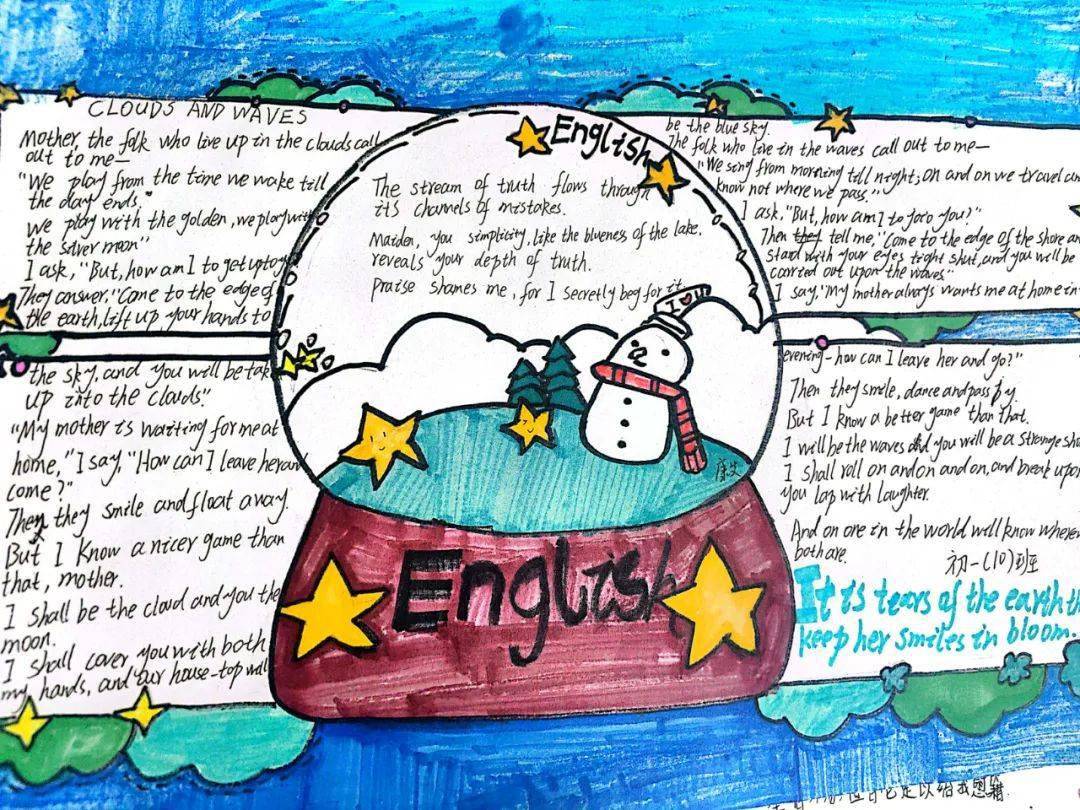 CLOUDS AND WAVES
Mother, the folk who live up in the clouds call
out to me—
"We play from the time we wake till
the day ends."
we play with the golden, we play with
the silver moon"
I ask, "But, how am I to get up to y
They answer, "Come to the edge of
the earth, lift up your hands to
the sky, and you will be take
up into the clouds."
"My mother is waiting for me at
home," I say, "How can I leave her an
come?"
Then they smile and float away.
But I know a nicer game than
that, mother.
I shall be the cloud and you the
moon.
I shall cover you with both
my hands, and our house-top will
English
The stream of truth flows through
its channels of mistakes.
Maiden, you simplicity, like the blueness of the lake.
reveals your depth of truth.
Praise shames me, for I secretly beg for it.
I
康文
English
be the blue sky.
The folk who live in the waves call out to me—
"We sing from morning till night; on and on we travel an
know not where we pass."
I ask, "But, how am I to join you?"
Then they tell me, "Come to the edge of the shore an
stand with your eyes tight shut, and you will be
carried out upon the waves"
I say, "My mother always wants me at home in
evening-how can I leave her and go?"
Then they smile, dance and pass by.
But I know a better game than that.
I will be the waves and you will be a strange sh
I shall roll on and on and on, and break upon
you lap with laughter.
And on one in the world will know where
both are.
初一(10)班
It is tears of the earth th
keep her smiles in bloom.
足以给我恩籍